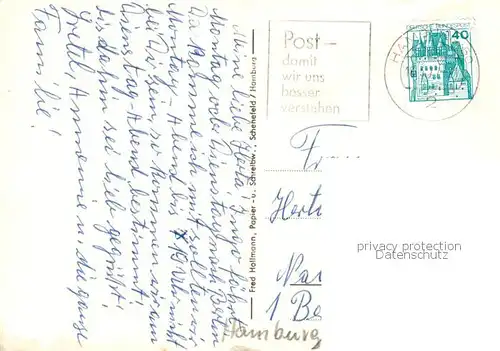 Meine liebe Herta, Ingo fährt
Montag oder Dienstag nach Berlin.
Da komme ich mit. Sollten wir
Montag-Abend bis 19 Uhr nicht
bei Dir sein, so kommen wir am
Dienstag-Abend bestimmt.
Bis dahin sei lieb gegrüßt!
Gretel, Annemie u. die ganze
Familie!
Fred Hollmann, Papier- u. Schreibw., Schenefeld / Hamburg
Post –
damit
wir uns
besser
verstehen
DEUTSCHE BUNDESPOST
40
HA
Fr
Hert
Nau
1 Be
Hamburg
privacy protection
Datenschutz